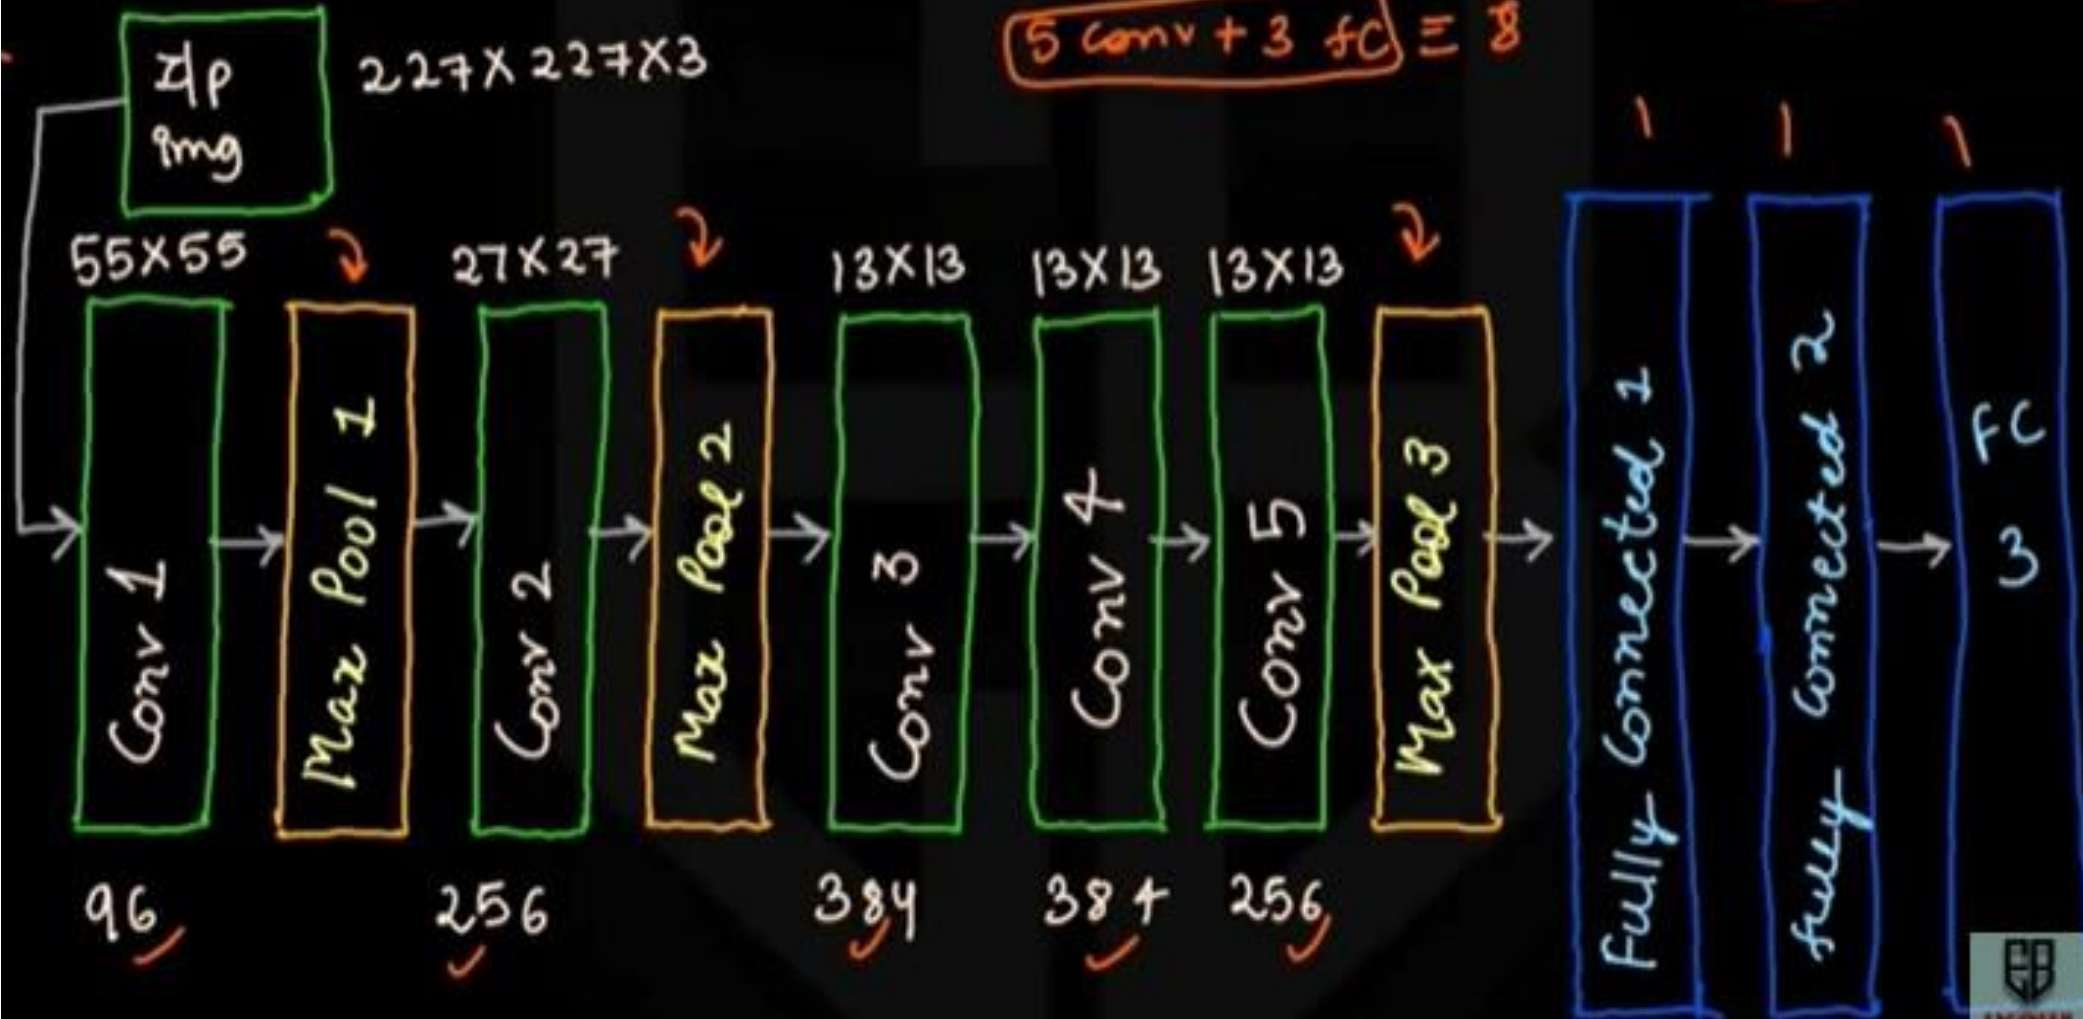 5 conv + 3 fC ≡ 8
I/p
img
227X227X3
1 1 1
55X55
27X27
13X13
13X13
13X13
Conv 1
Max Pool 1
Conv 2
Max Pool 2
Conv 3
Conv 4
Conv 5
Max Pool 3
Fully Connected 1
fully Connected 2
FC
3
96
256
384
384
256